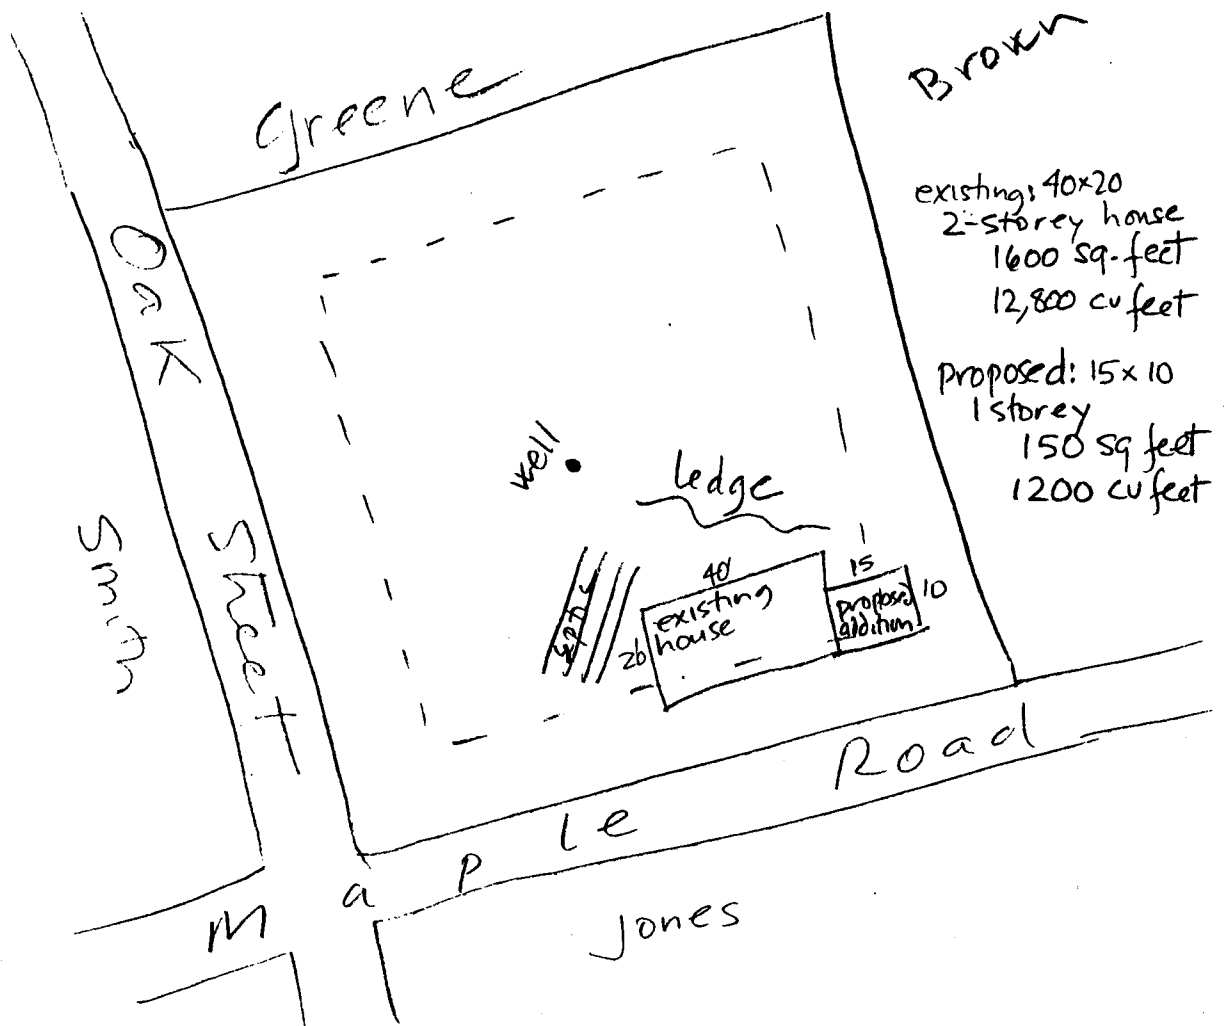 Greene
Brown
existing: 40x20
2-storey house
1600 sq. feet
12,800 cu feet
proposed: 15x10
1 storey
150 sq feet
1200 cu feet
Oak Street
Smith
well
Ledge
septic
40'
existing
house
26
15
10
proposed
addition
Maple Road
Jones